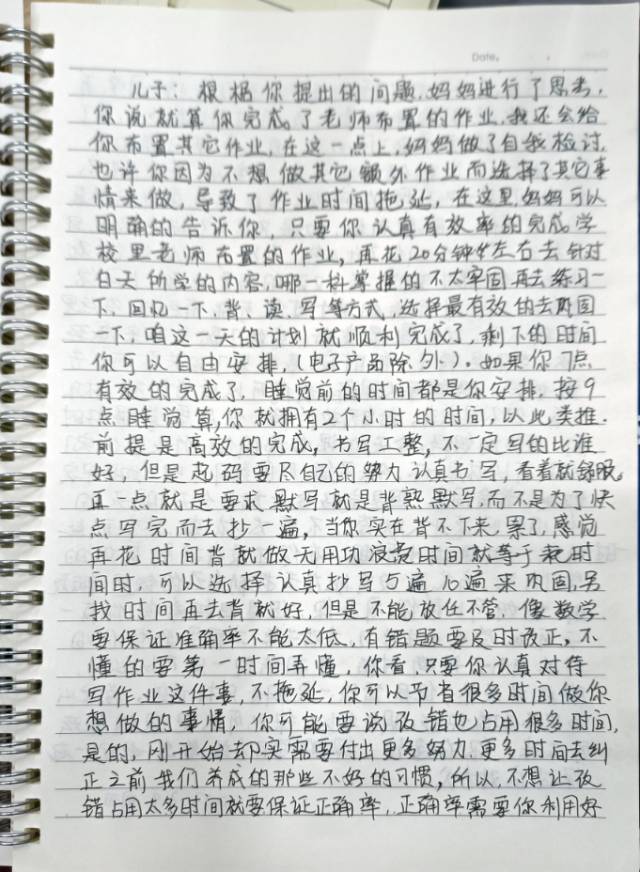 Date.
儿子：根据你提出的问题，妈妈进行了思考，
你说就算你完成了老师布置的作业，我还会给
你布置其它作业，在这一点上，妈妈做了自我检讨，
也许你因为不想做其它额外作业而选择了其它事
情来做，导致了作业时间拖延，在这里，妈妈可以
明确的告诉你，只要你认真有效率的完成学
校里老师布置的作业，再花20分钟左右去针对
白天所学的内容，哪一科掌握的不太牢固再去练习一
下，回忆一下，背、读、写等方式，选择最有效的去巩固
一下，咱这一天的计划就顺利完成了，剩下的时间
你可以自由安排，（电子产品除外）。如果你7点
有效的完成了，睡觉前的时间都是你安排，按9
点睡觉算，你就拥有2个小时的时间，以此类推。
前提是高效的完成，书写工整，不一定写的比谁
好，但是起码要尽自己的努力认真书写，看着就舒服，
再一点就是要求默写就是背熟默写，而不是为了快
点写完而去抄一遍，当你实在背不下来，累了，感觉
再花时间背就做无用功浪费时间就等于耗时
间时，可以选择认真抄写5遍10遍来巩固，另
找时间再去背就好，但是不能放任不管，像数学
要保证准确率不能太低，有错题要及时改正，不
懂的要第一时间弄懂，你看，只要你认真对待
写作业这件事，不拖延，你可以节省很多时间做你
想做的事情，你可能要说改错也占用很多时间，
是的，刚开始却实需要付出更多努力，更多时间去纠
正之前我们养成的那些不好的习惯，所以，不想让改
错占用太多时间就要保证正确率，正确率需要你利用好